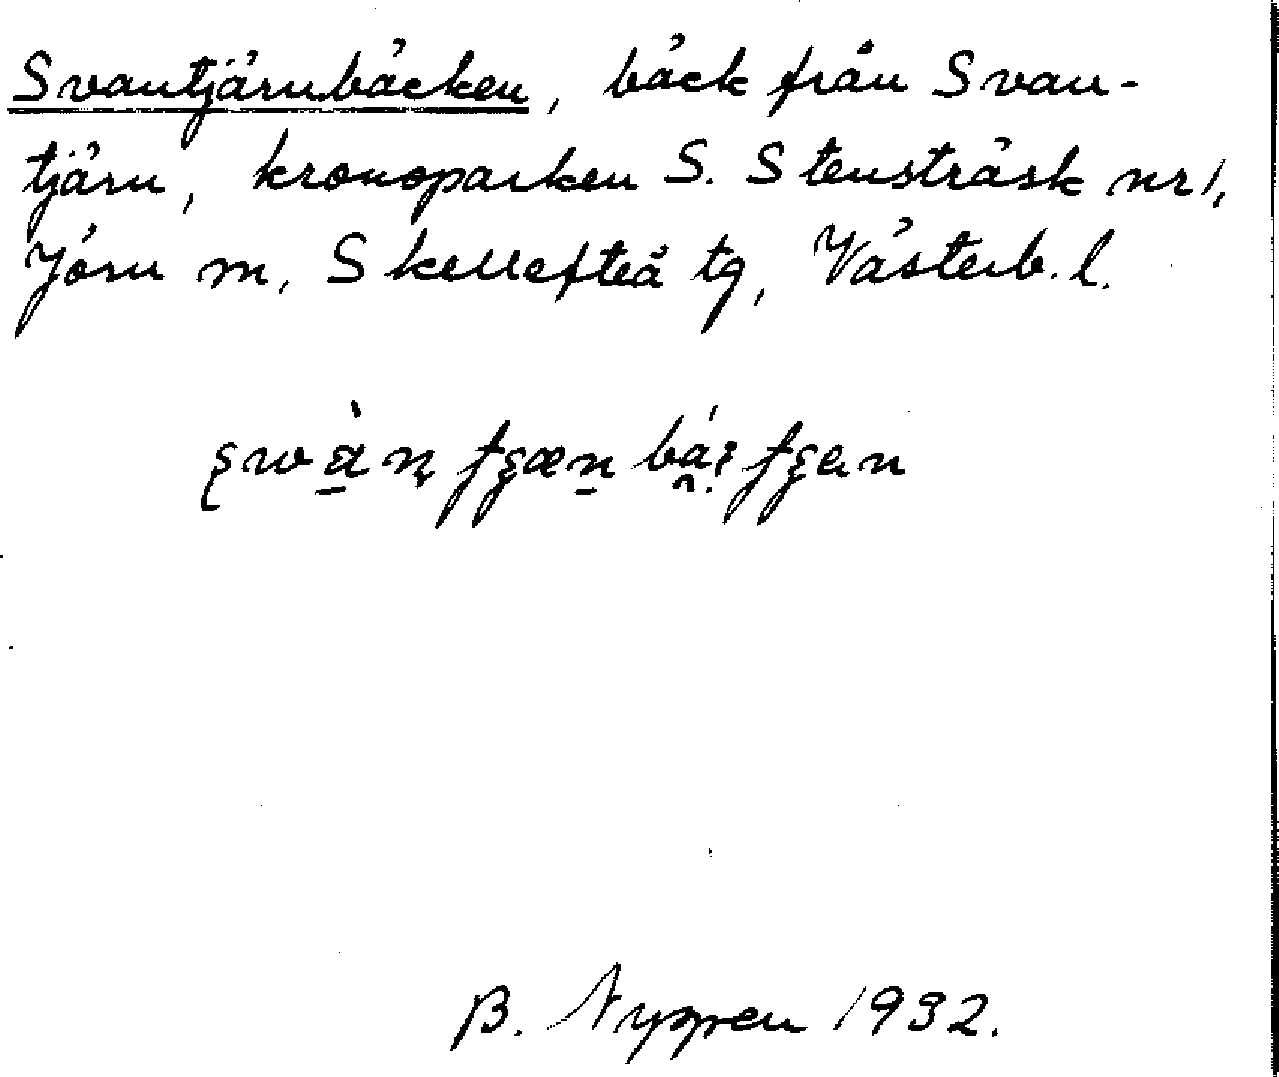 Svantjärnbäcken, bäck från Svan-
tjärn, kronoparken S. Stensträsk nr 1,
Jörn sn, Skellefteå tg, Västerb. l.
B. Nygren 1932.